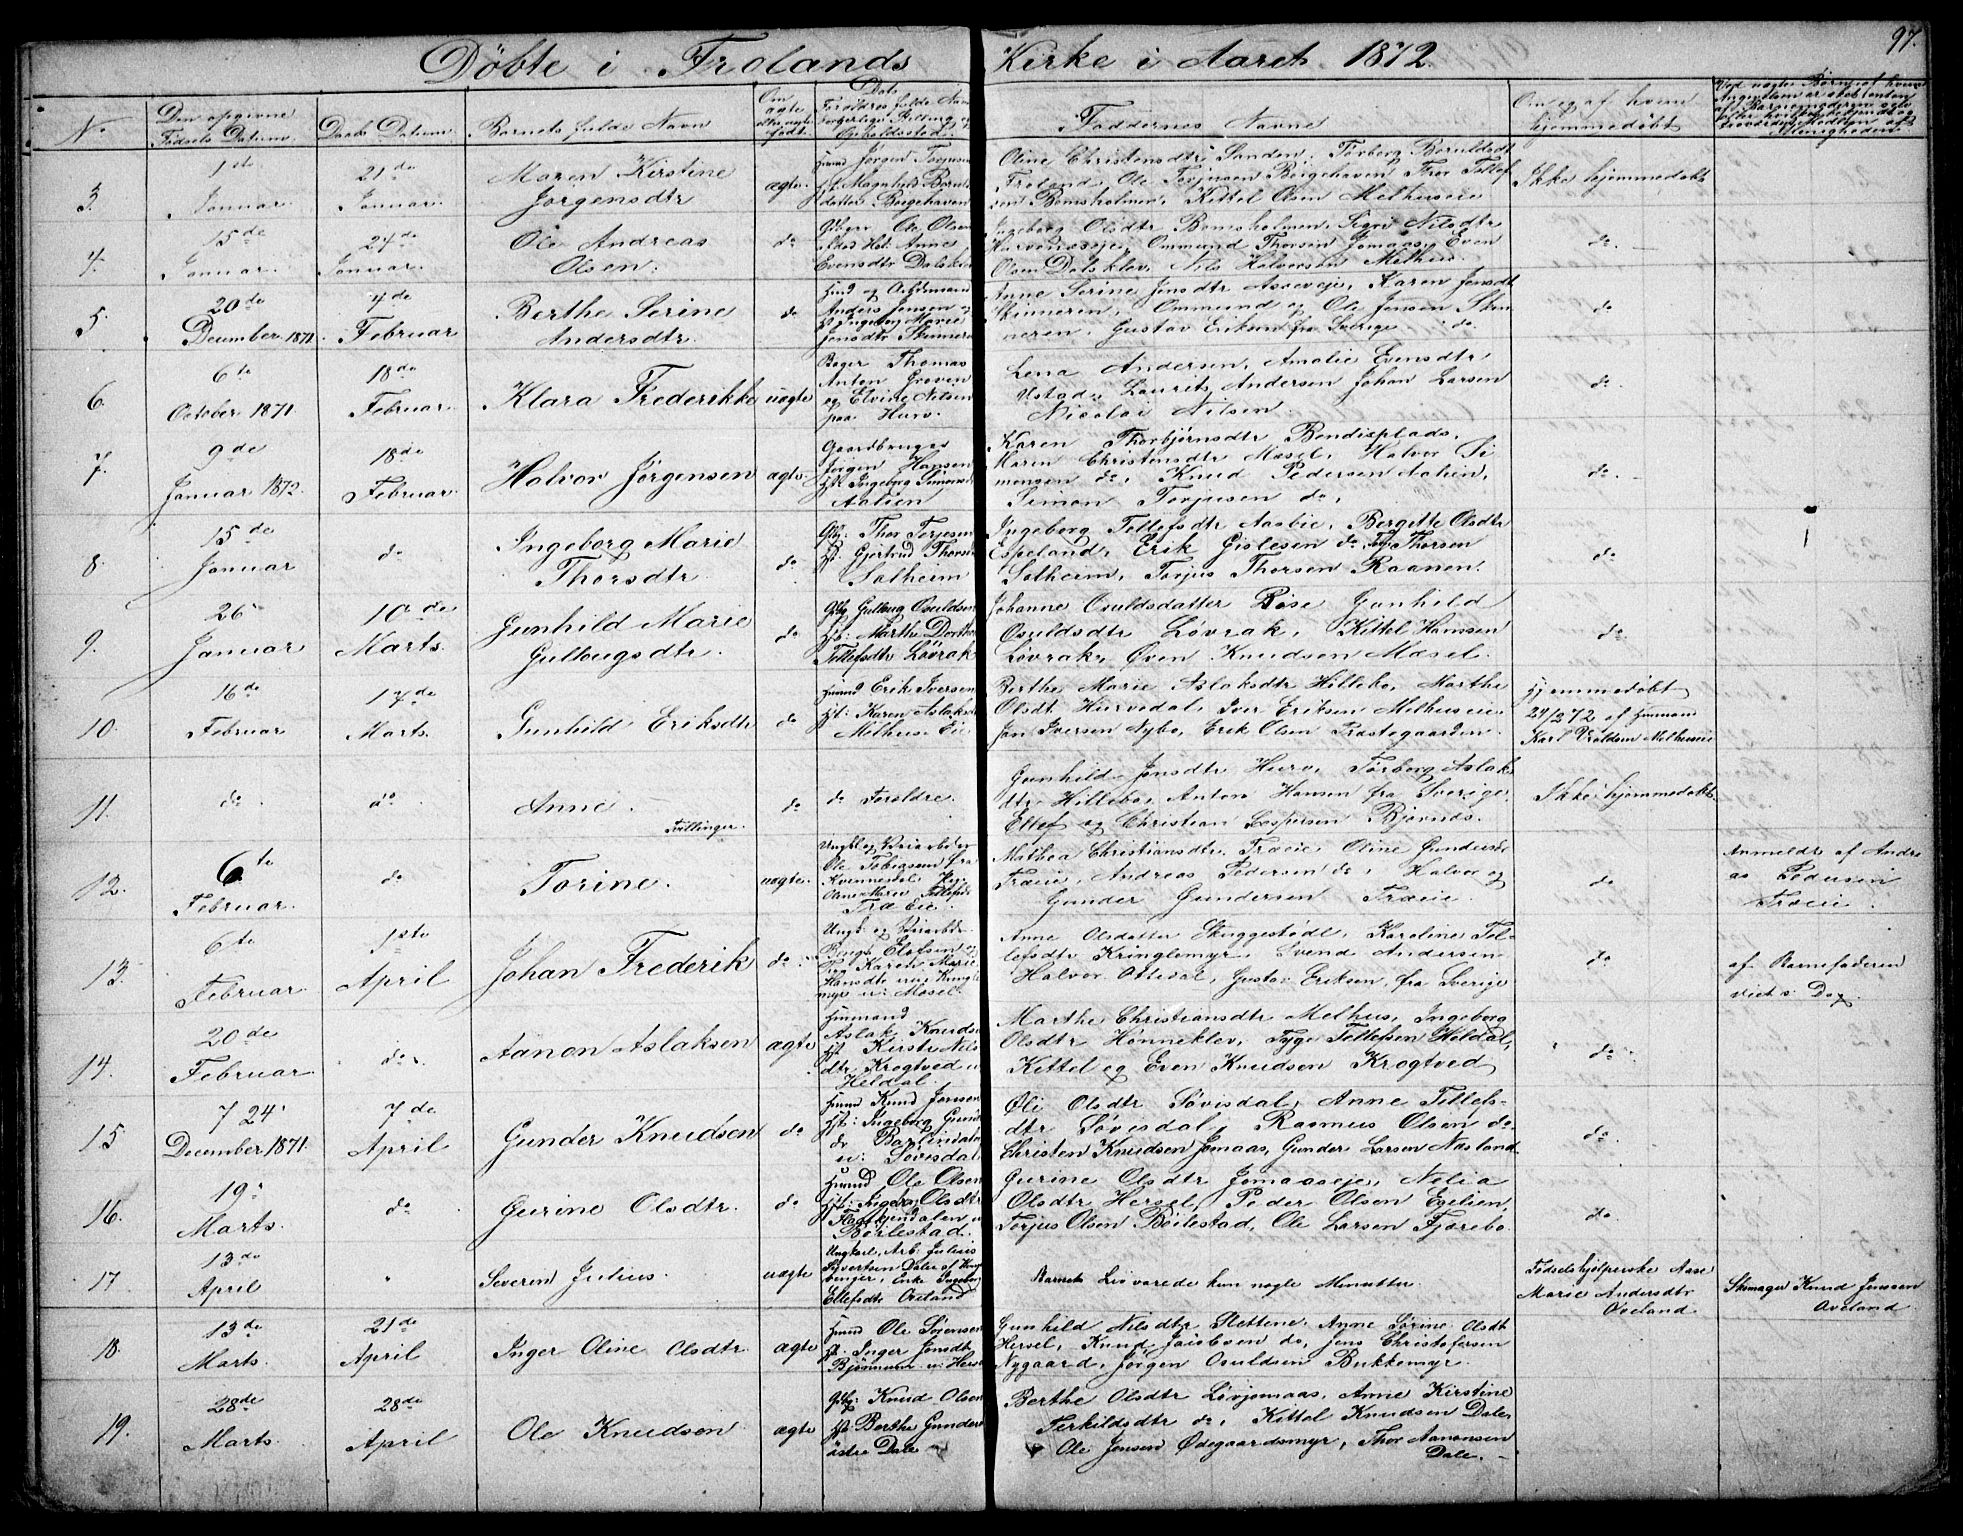 97.
Døbte i Frolands Kirke i Aaret 1872.
No
Den opgivne
Fødsels Datum
Daabs Datum
Barnets fulde Navn
Om
ægte
født.
Faddernes Navne
Om og af hvem
hjemmedøbt
3.
1ste
Januar.
21de
Januar.
Maren Kirstine
Jørgensdtr
ægte.
Huus Jørgen Torjusen
datter Borgehaven
Oline Christensdtr Sanden, Torborg Boruldsdt
Froland, Ole Torjusen Borgehaven Thor Tellef
sen Bomsholmen, Kittel Olsen Melhuseie
Ikke hjemmedøbt
4.
15de
Januar.
24de
Januar.
Ole Andreas
Olsen.
do
Ole Olsen
Anne
Evensdtr Dalsklev
Ingeborg Olsdtr Bomsholmen, Sigri Nilsdtr
Ommund Thorsen Jomaas, Even
Olsen Dalsklev, Nils Halvorsen Melhus.
do. —
5.
20de
December 1871.
4de
Februar
Berthe Serine
Andersdtr.
do
Anders Jensen og
H. Ingeborg Marie
Jensdtr Skinneren
Anne Serine Jensdtr Karen Jensdt
Skinneren, Ommund og Ole Jensen Skin
neren, Gustav Eriksen fra Sverige do.
do
6.
6te
October 1871.
18de
Februar
Klara Frederikke
uægte
Bager Thomas
Anton Groven
og Elvine Nilsen
paa Hurv.
Lena Andersen, Amalie Evensdtr
Ustad, Laurits Andersen Johan Larsen
Nicolai Nilsen.
do.
7.
9de
Januar 1872.
18de
Februar.
Halvor Jørgensen
ægte.
Gaardbruger
Jørgen Hansen
H. Ingeborg Simonsd
Aalien
Karen Thorbjørnsdtr Bendixplads,
Maren Christensdtr Mosel, Halvor Si
monsen do, Knud Pedersen Aalien,
Simon Torjusen do.
do. —
8.
15de
Januar
do
Ingeborg Marie
Thorsdtr.
do
Gbg: Thor Torjesen
H: Gjertrud Thorsd
Solheim
Ingeborg Tellefsdtr Aasbie, Bergitte Olsdtr
Espeland, Erik Gislesen do Torj Thorsen
Solheim, Torjus Thorsen Raanen.
do
9.
26
Januar
10de
Marts.
Gunhild Marie
Gulbugsdtr.
do
Gbg Gulbug Osuldsen
H: Marthe Dorthea
Tellefsdtr Løvrak
Johanne Osuldsdatter Rise Gunhild
Osuldsdtr Løvrak, Kittel Hansen
Løvrak, Øven Knudsen Mosel.
do
10.
16de
Februar
17de
Marts.
Gunhild Eriksdtr
do
Huusmd Erik Iversen
H: Karen Aslaksd
Melhus Eie
Berthe Marie Aslaksdtr Hillebo, Marthe
Olsdt Hurvedal, Iver Eriksen Melhuseie
Jon Iversen Nybo, Erik Olsen Præstegaarden.
Hjemmedøbt
24/2 72 af Huusmand
Karl Melhuseie
11.
do.
do.
Anne. —
Tvillinger.
do
do Forældre.
Gunhild Jonsdtr Hurv, Torborg Aslaks
dtr Hillebo, Anton Hansen fra Sverige,
Ellef og Christian Jespersen Bjørnds.
Ikke hjemmedøbt
12.
6te
Februar.
do
Torine.
uægte.
Ungkl og Veiarbeider
Ole Tobiasen fra
Kvennestel Pig.
Oline Marie Tellefsd
Træ Eie.
Mathea Christiansdtr. Træeie Oline Gundersd
Træeie, Andreas Pedersen do, Halvor og
Gunder Gundersen Træeie.
do
Anmeldt af Andre
as Pedersen
Træeie.
13.
6te
Februar.
1ste
April
Johan Frederik
do.
Ungk. og Veiarbdr
Elofsen og
Karen Marie
Hansdtr
myr u. Mosel.
Anne Olsdatter Skuggestøl, Karoline Tel-
lefsdtr Kringlemyr, Svend Andersen
Halvor Osedal, Gustav Eriksen, fra Sverige
do
af Barnefaderen
viet s. Dag.
14.
20de
Februar.
do.
Aanon Aslaksen
ægte
Huusmand
Aslak Knudse
H. Kirsti Nils
dtr. Krogtved u
Heldal.
Marthe Christiansdtr Melhus, Ingeborg
Olsdtr Hønneklev, Tyge Tellefsen Heldal,
Kittel og Even Knudsen Krogtved
do.
15
24
December 1871.
7de
April
Gunder Knudsen
do
Huusmd Knud Jensen
H: Ingeborg Gund
u: Søvisdal
Oli Olsdtr Søvisdal, Anne Tellefs-
dtr Søvisdal, Rasmus Olsen do
Christen Knudsen Jomaas, Gunder Larsen Næsland.
do.
16.
19
Marts.
do.
Gurine Olsdtr.
do
Huusmd Ole Olsen
H: Ingebor Olsdtr
Bøilestad.
Gurine Olsdtr Jomaaseje, Nelia
Olsdtr Hersel, Peder Olsen Egelien,
Torjus Olsen Bøilestad, Ole Larsen Fjærebo.
do
17
13de
April
"
Severin Julius.
uægte
Ungkarl, Arb: Julius
Syvertsen Dale af
Enke Ingeborg
Ellefsdtr Oveland
Barnet Livvarede kun nogle Minutter.
Fødselshjelperske Aase
Marie Andersdtr
Oveland.
Skomager Knud Jenssen
Oveland.
18.
13de
Marts.
21de
April
Inger Oline Olsdtr.
ægte
Huusmd Ole Sørensen
H: Inger Jonsdt
u: Hersel
Gunhild Nilsdtr Slettene, Anne Sørine Olsdt
Hersel, Knud Jacobsen do, Jens Christofersen
Nygaard, Jørgen Osuldsen Bukkemyr.
19.
28de
Marts.
28de
April
Ole Knudsen
ægte
Gbg: Knud Olsen
H: Berthe Gunders
østre Dale
Berthe Olsdtr Løvjomaas, Anne Kirstine
Terkildsdtr do, Kittel Knudsen Dale,
Ole Jensen Ødegaardsmyr, Thor Aanonsen
Dale. —